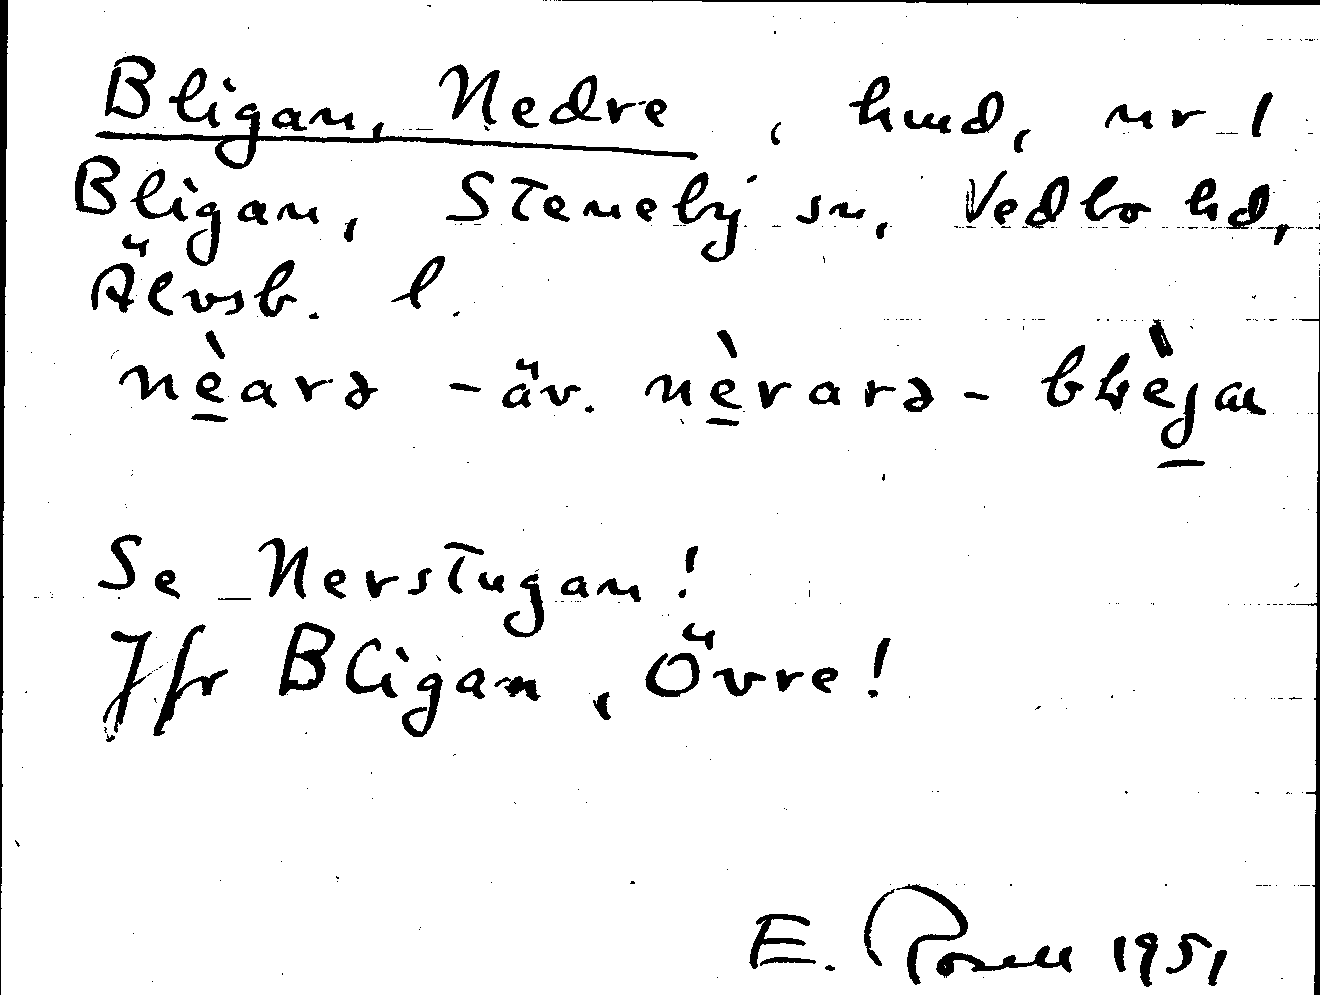 Bligan, Nedre, hmd, nr 1
Bligan, Steneby sn, Vedbo hd,
Älvsb. l.
nè̱arə - äv. nè̱rarə -
Se Nerstugan!
Jfr Bligan, Övre!
E. Rosell 1951